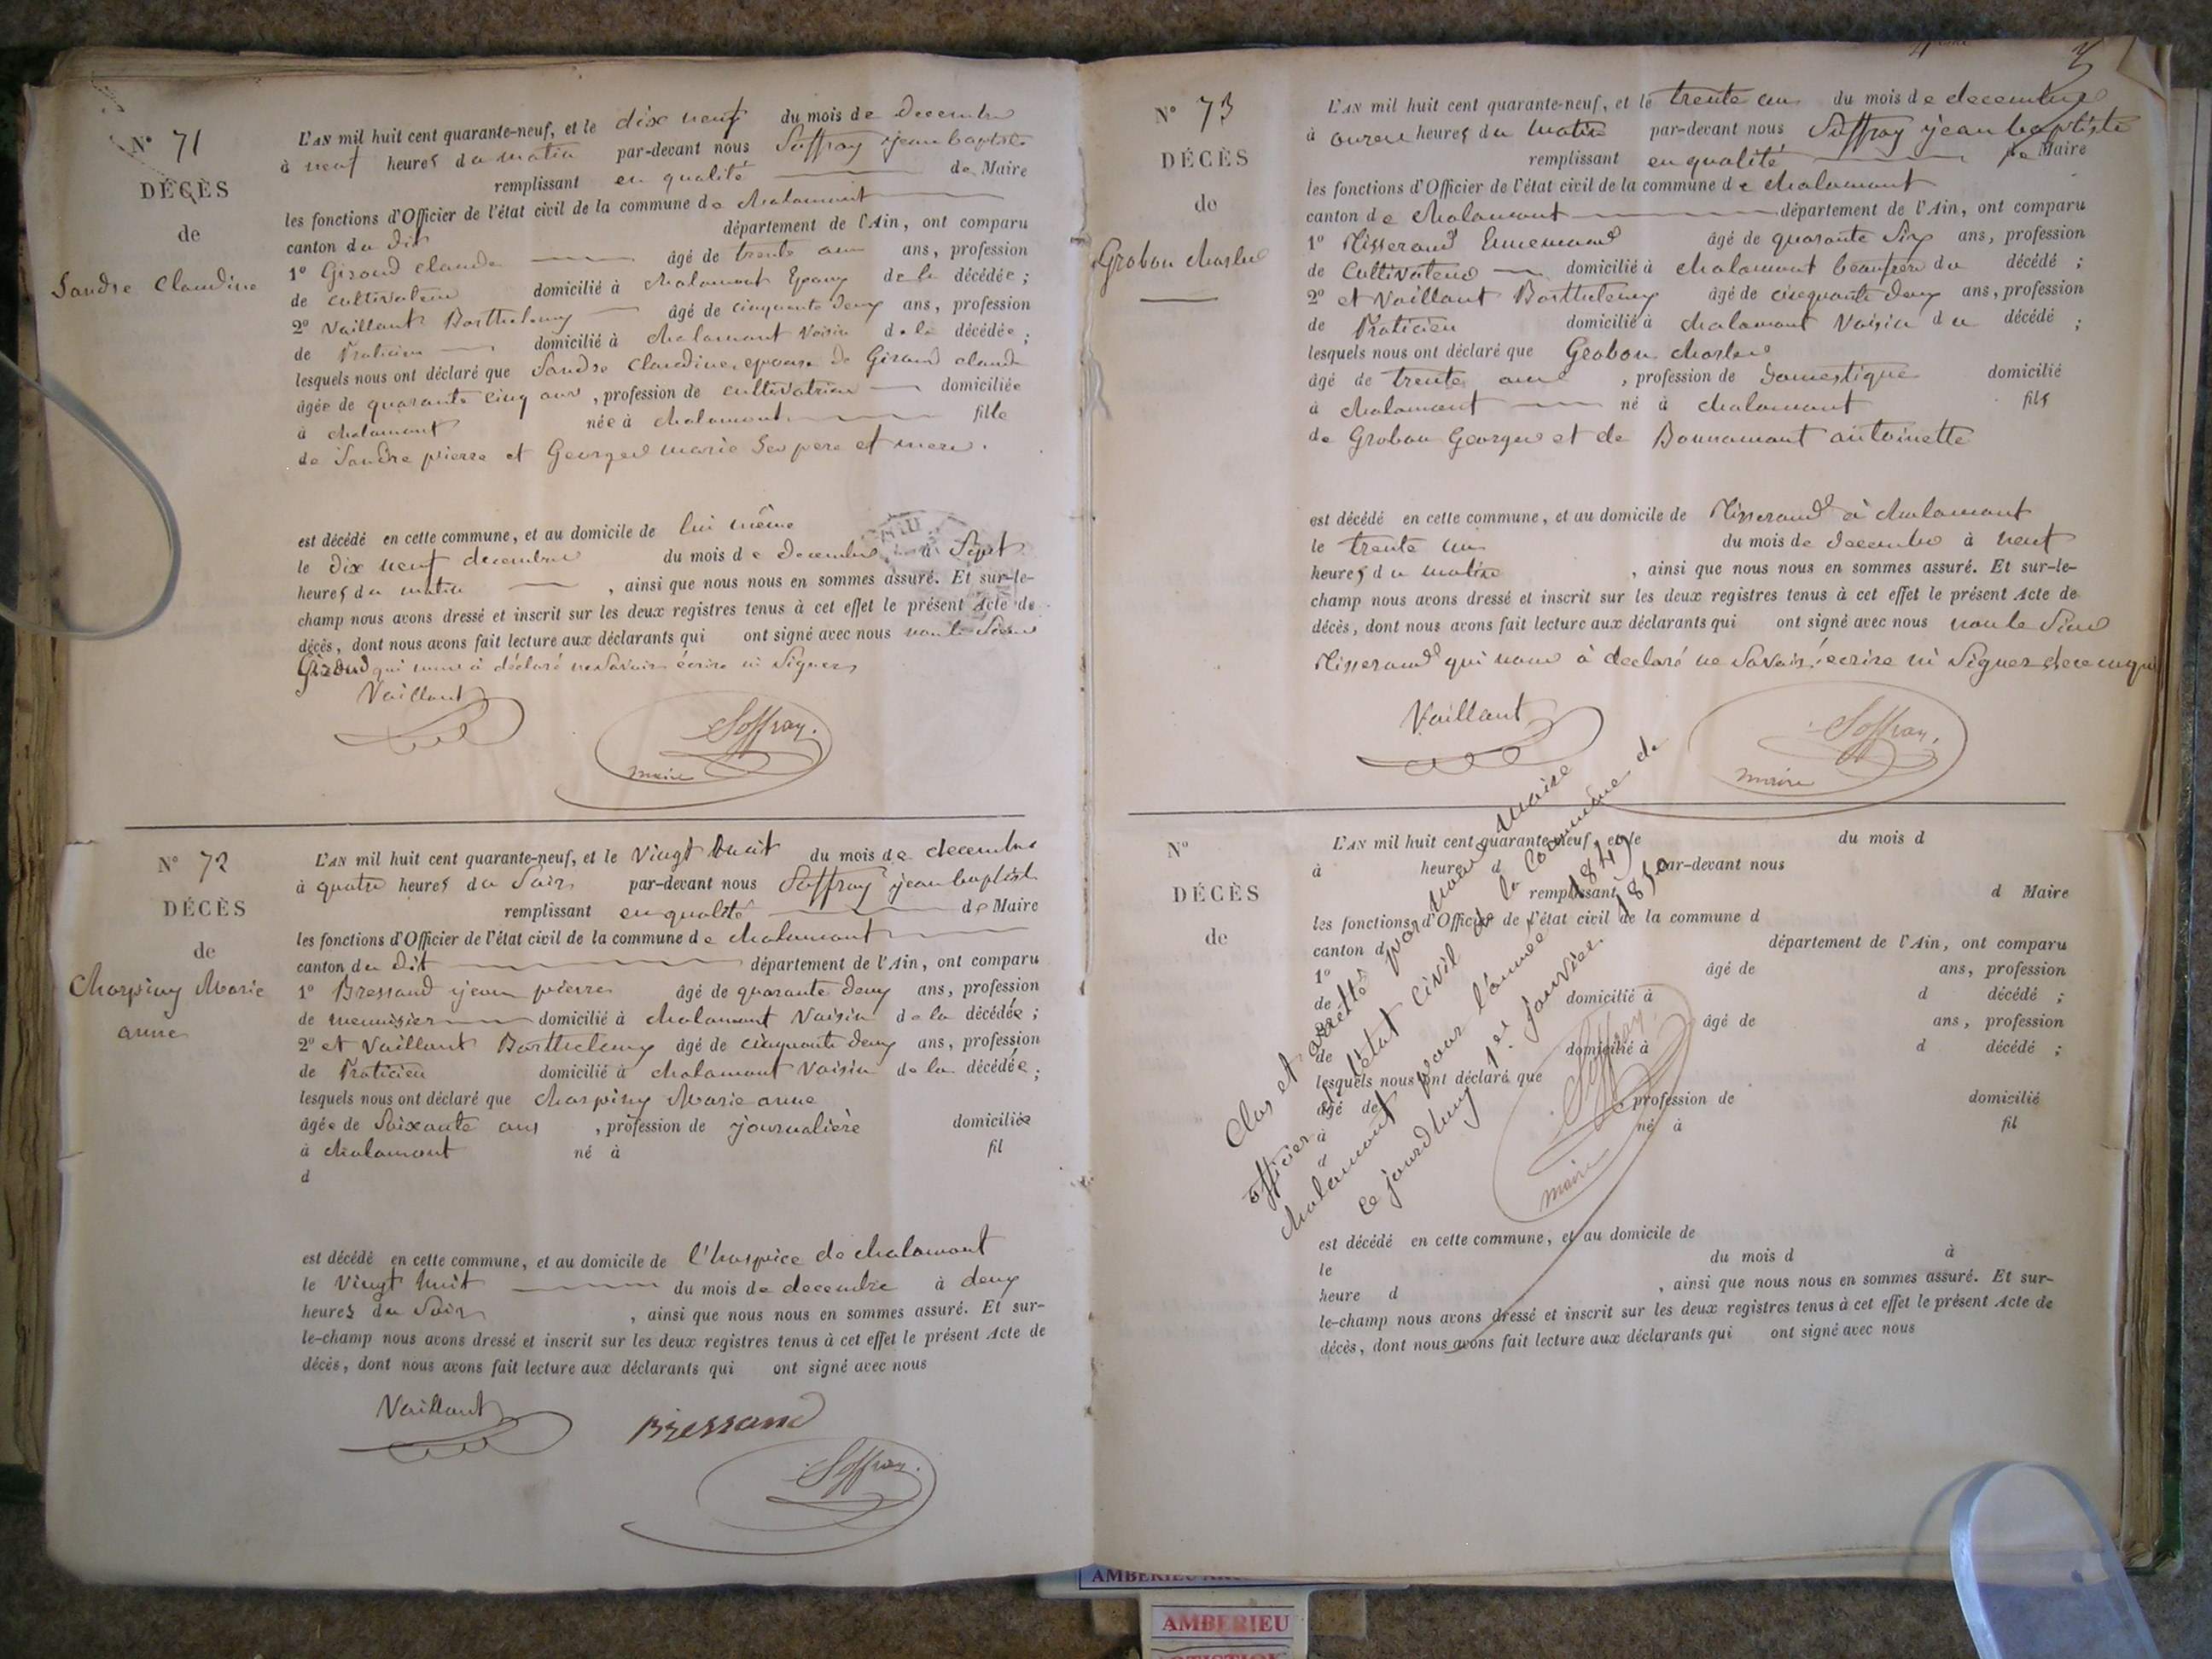 N° 71
DÉCÈS
de
Sandre Claudine
L'AN mil huit cent quarante-neuf, et le dix neuf du mois de decembre
à neuf heures du matin par-devant nous Soffray jean baptiste
remplissant en qualité de Maire
les fonctions d'Officier de l'état civil de la commune de chalamont
canton du dit département de l'Ain, ont comparu
1° Giroud claude âgé de trente ans, profession
de cultivateur domicilié à chalamont Epoux de la décédée ;
2° Vaillant Barthelemy âgé de cinquante deux ans, profession
de Praticien domicilié à chalamont Voisin de la décédée ;
lesquels nous ont déclaré que Sandre Claudine epouse de Giroud claude
âgée de quarante cinq ans, profession de cultivatrice domiciliée
à chalamont née à chalamont fille
de Sandre pierre et Georges marie ses pere et mere.
est décédé en cette commune, et au domicile de lui même
le dix neuf decembre du mois de decembre à Sept
heures du matin, ainsi que nous nous en sommes assuré. Et sur-le-
champ nous avons dressé et inscrit sur les deux registres tenus à cet effet le présent Acte de
décès, dont nous avons fait lecture aux déclarants qui ont signé avec nous non le Sieur
Giroud qui nous à déclaré ne Savoir écrire ni Signer
Vaillant
Soffray.
maire
N° 72
DÉCÈS
de
Charpiny Marie
anne
L'AN mil huit cent quarante-neuf, et le Vingt huit du mois de decembre
à quatre heures du Soir par-devant nous Soffray jean baptiste
remplissant en qualité de Maire
les fonctions d'Officier de l'état civil de la commune de chalamont
canton du dit département de l'Ain, ont comparu
1° Bressand jean pierre âgé de quarante deux ans, profession
de menuisier domicilié à chalamont Voisin de la décédée ;
2° et Vaillant Barthelemy âgé de cinquante deux ans, profession
de Praticien domicilié à chalamont Voisin de la décédée ;
lesquels nous ont déclaré que charpiny Marie anne
âgée de Soixante ans, profession de journalière domiciliée
à chalamont né à fil
d
est décédé en cette commune, et au domicile de l'hospice de chalamont
le Vingt huit du mois de decembre à deux
heures du Soir, ainsi que nous nous en sommes assuré. Et sur-
le-champ nous avons dressé et inscrit sur les deux registres tenus à cet effet le présent Acte de
décès, dont nous avons fait lecture aux déclarants qui ont signé avec nous
Vaillant
Bressand
Soffray.
N° 73
DÉCÈS
de
Grobon charles
L'AN mil huit cent quarante-neuf, et le trente un du mois de decembre
à onze heures du matin par-devant nous Soffray jean baptiste
remplissant en qualité de Maire
les fonctions d'Officier de l'état civil de la commune de chalamont
canton de chalamont département de l'Ain, ont comparu
1° Tisserand Ennemond âgé de quarante Six ans, profession
de Cultivateur domicilié à chalamont beaufrere du décédé ;
2° et Vaillant Barthelemy âgé de cinquante deux ans, profession
de Praticien domicilié à chalamont Voisin du décédé ;
lesquels nous ont déclaré que Grobon charles
âgé de trente ans, profession de Domestique domicilié
à chalamont né à chalamont fils
de Grobon Georges et de Bonnamont antoinette
est décédé en cette commune, et au domicile de Tisserand à chalamont
le trente un du mois de decembre à neuf
heures du matin, ainsi que nous nous en sommes assuré. Et sur-le-
champ nous avons dressé et inscrit sur les deux registres tenus à cet effet le présent Acte de
décès, dont nous avons fait lecture aux déclarants qui ont signé avec nous non le Sieur
Tisserand qui nous à declaré ne Savoir écrire ni Signer de ce enquis
Vaillant
Soffray.
maire
N°
DÉCÈS
de
L'AN mil huit cent quarante-neuf, et le du mois d
à heure d par-devant nous
remplissant d Maire
les fonctions d'Officier de l'état civil de la commune d
canton d département de l'Ain, ont comparu
1° âgé de ans, profession
de domicilié à d décédé ;
2° âgé de ans, profession
de domicilié à d décédé ;
lesquels nous ont déclaré que
âgé de profession de domicilié
à né à fil
d
est décédé en cette commune, et au domicile de
le du mois d à
heure d, ainsi que nous nous en sommes assuré. Et sur-
le-champ nous avons dressé et inscrit sur les deux registres tenus à cet effet le présent Acte de
décès, dont nous avons fait lecture aux déclarants qui ont signé avec nous
Clos et arretté par nous Maire
officier de l'état civil de la Commune de
chalamont pour l'année 1849
ce jourdhuy 1er Janvier 1850
Soffray
maire
AMBERIEU
AMBERIEU